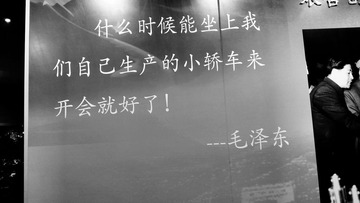 什么时候能坐上我
们自己生产的小轿车来
开会就好了！
---毛泽东